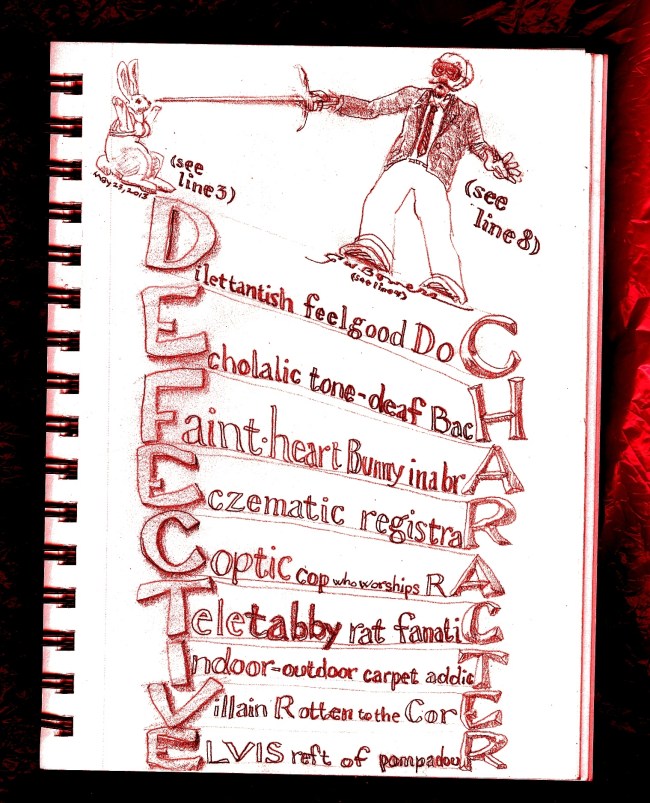 May 23, 2013
(see
line 3)
(see
line 8)
(see line
Dilettantish feelgood DoC
Echolalic tone-deaf BacH
Faint-heart Bunny in a brA
Eczematic registraR
Coptic Cop who worships RA
Teletabby rat fanatiC
Indoor-outdoor carpet addicT
Villain Rotten to the CorE
ELVIS reft of pompadouR